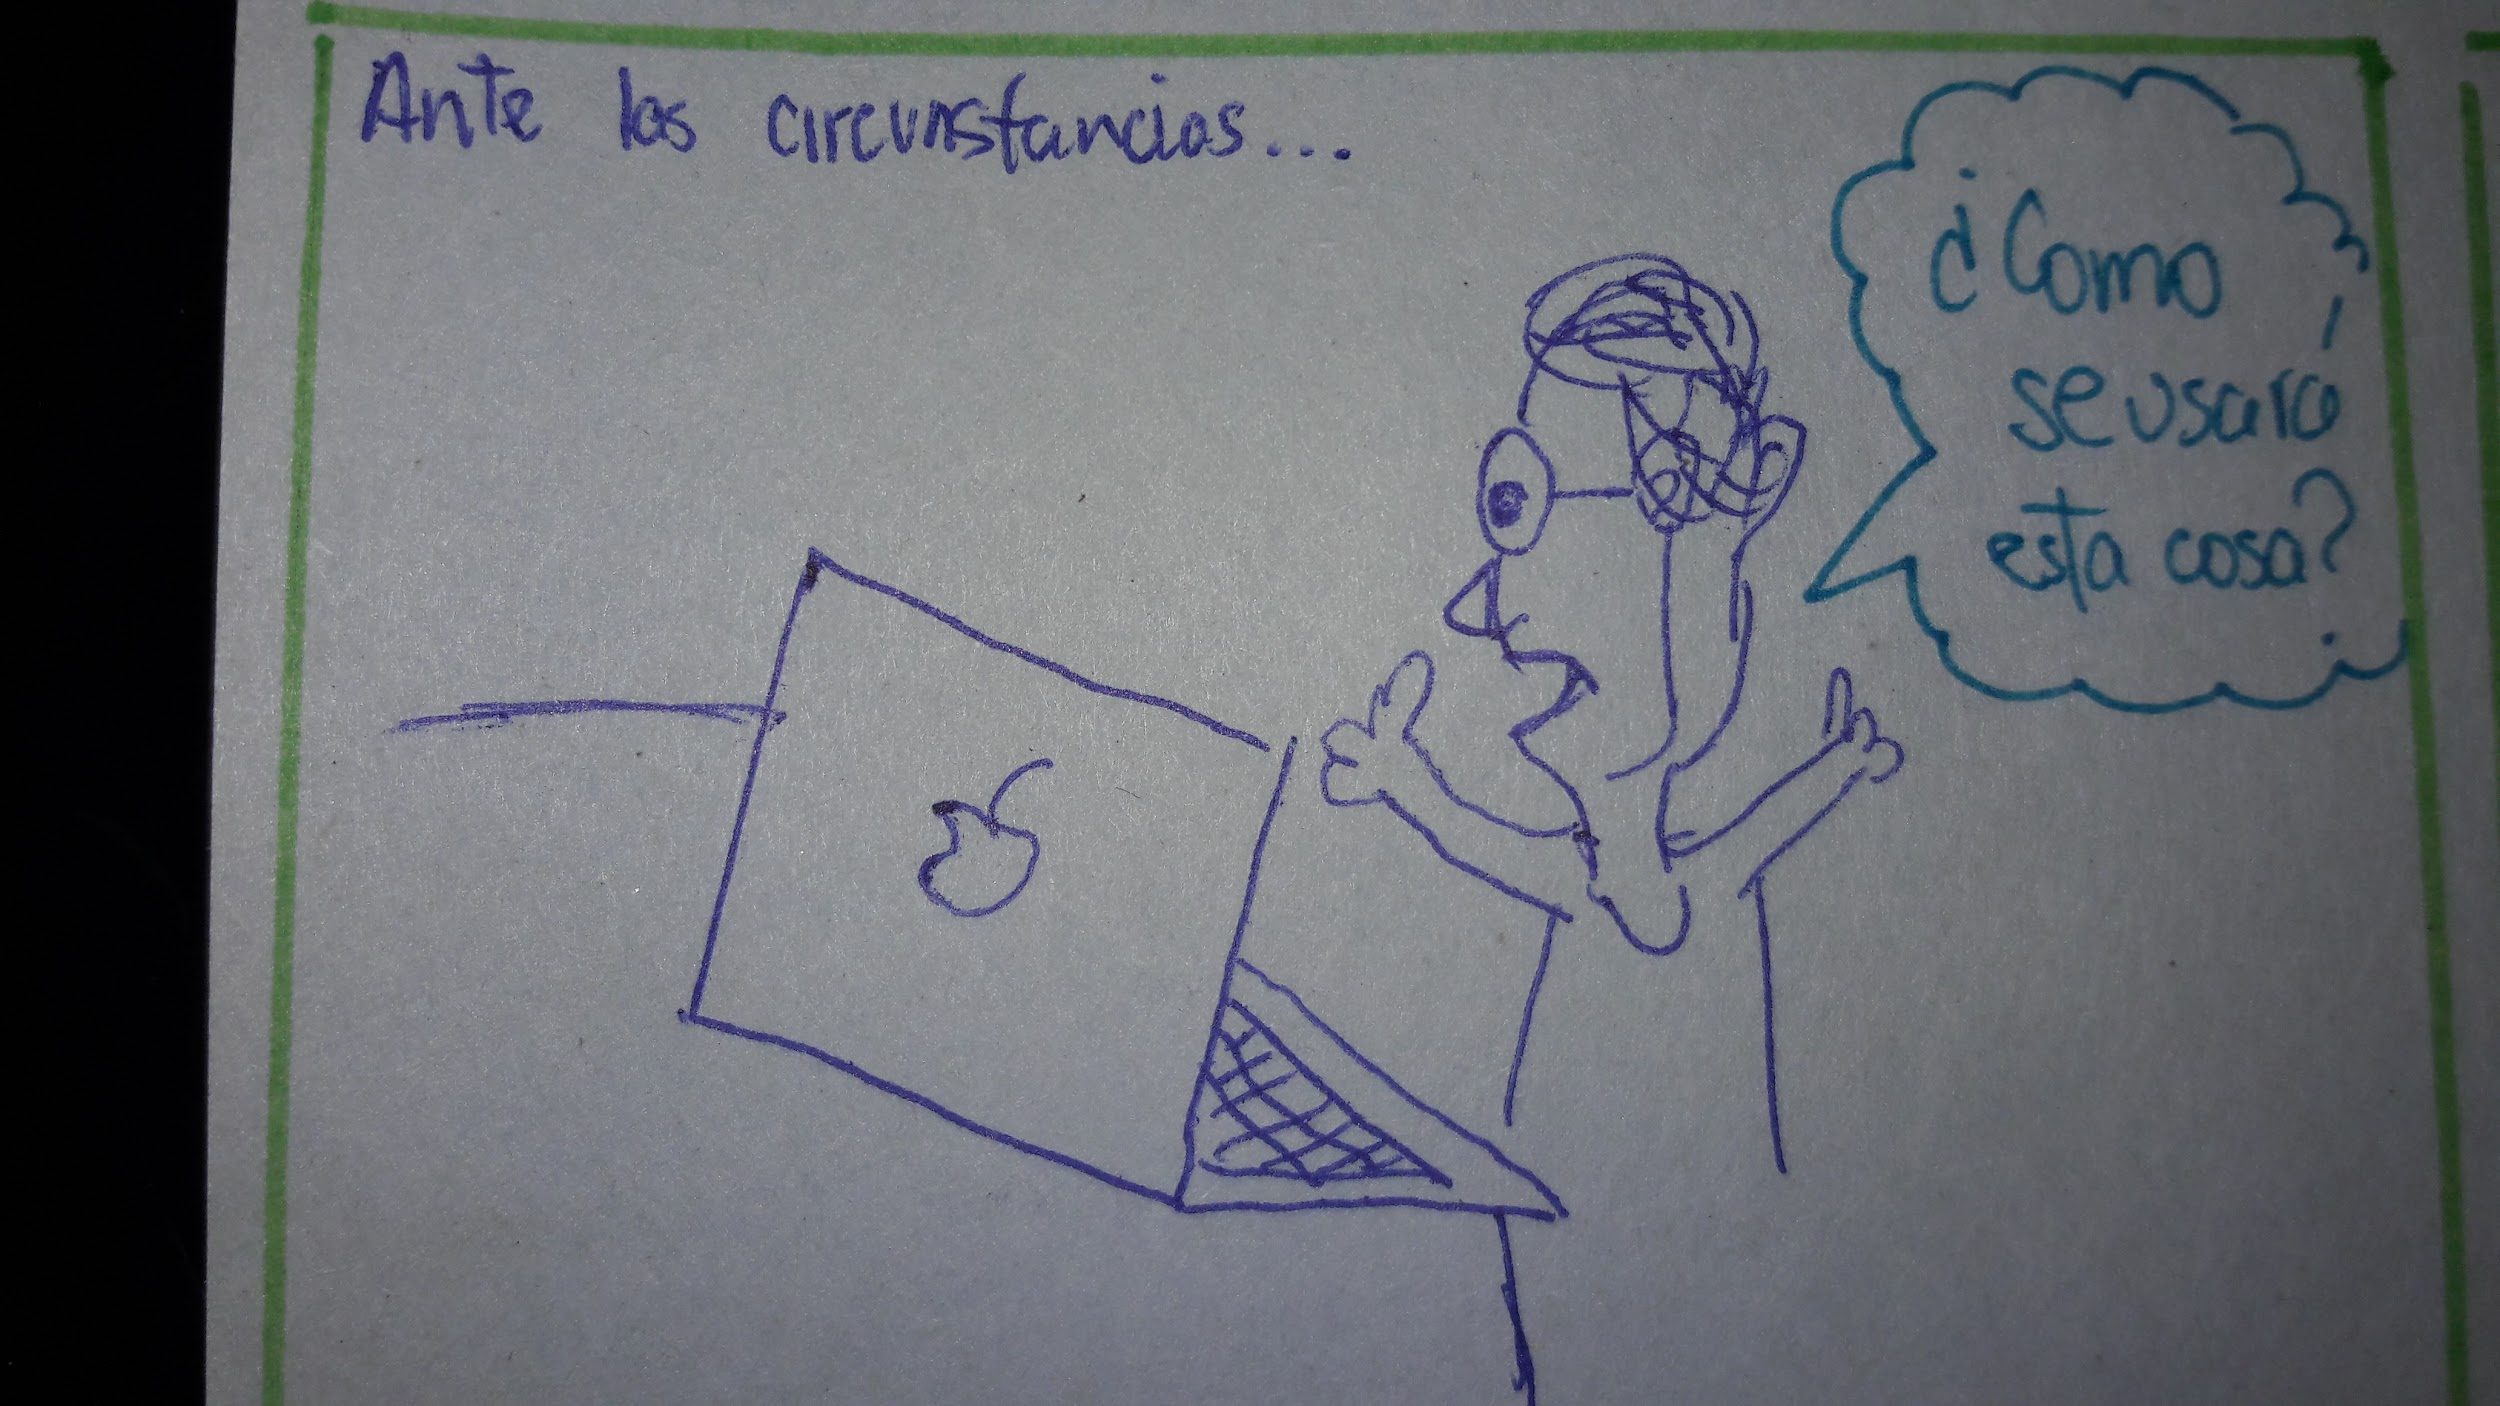 Ante las circunstancias...
¿Como
se usará
esta cosa?